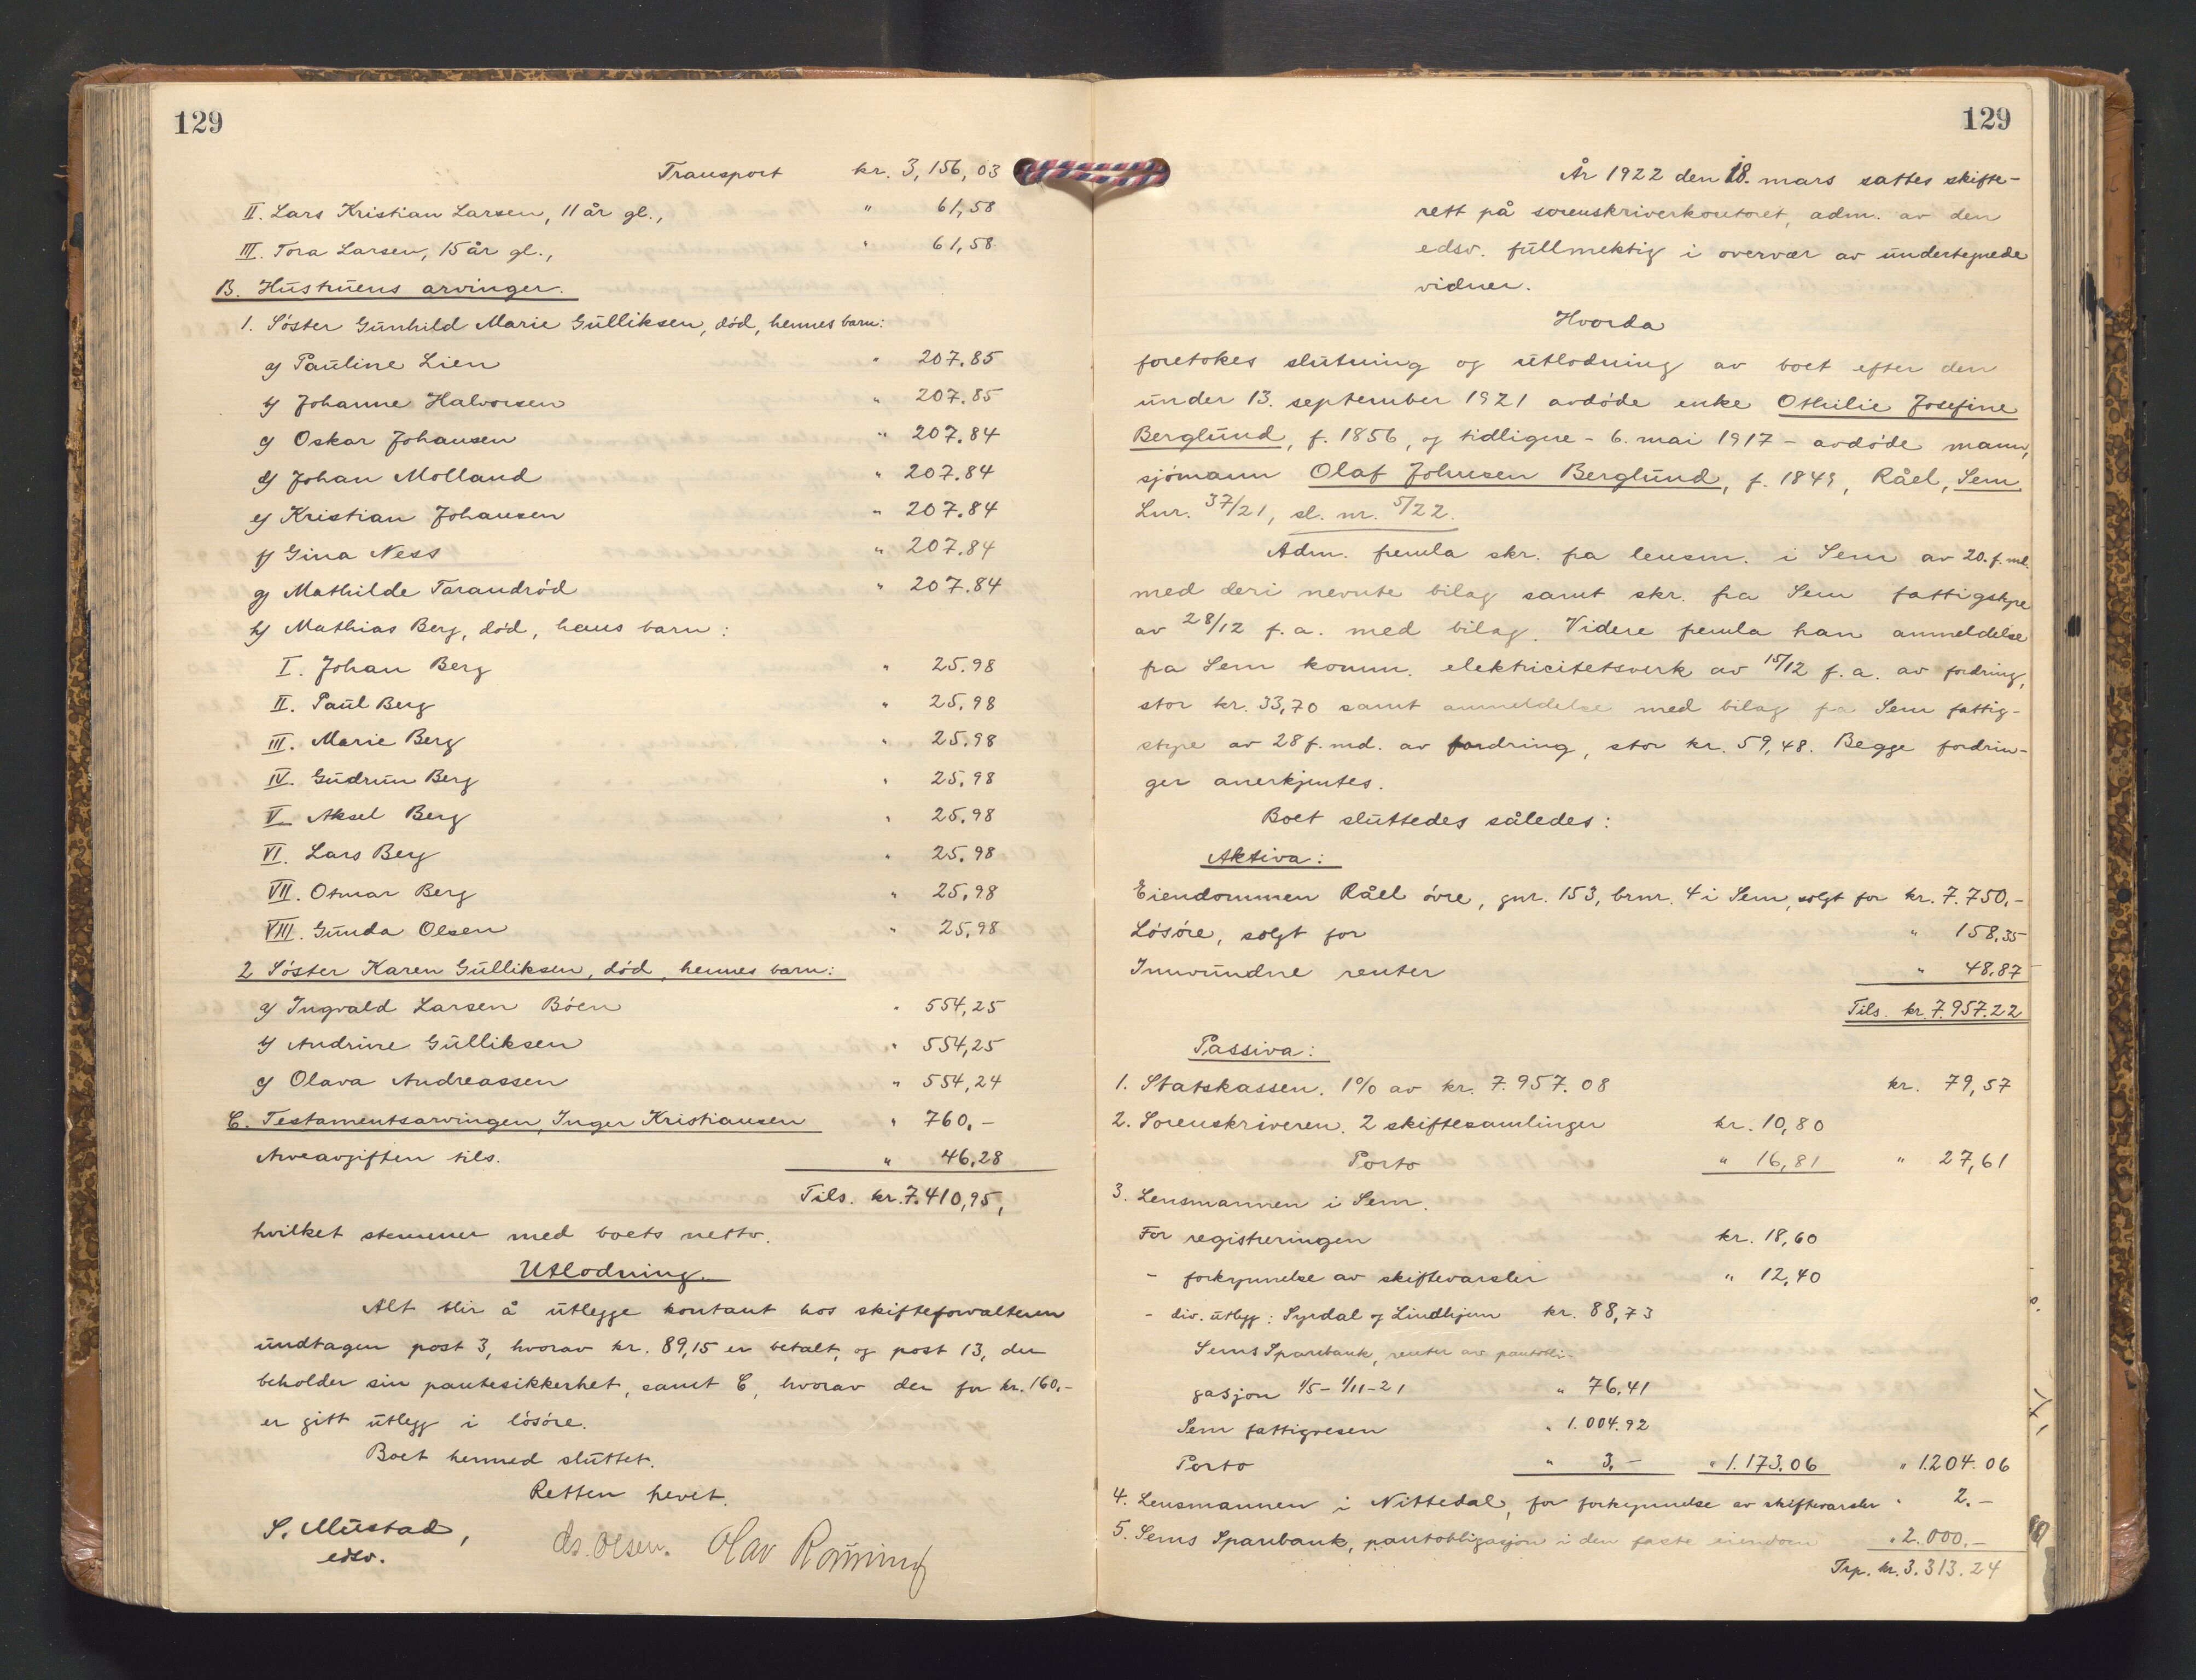 129
Transport kr. 3,156,03
II. Lars Kristian Larsen, 11 år gl., " 61,58
III. Tora Larsen, 15 år gl., " 61,58
B. Hustruens arvinger.
1. Søster Gunhild Marie Gulliksen, død, hennes barn:
a) Pauline Lien " 207.85
b) Johanne Halvorsen " 207.85
c) Oskar Johansen " 207.84
d) Johan Molland " 207.84
e) Kristian Johansen " 207.84
f) Gina Ness " 207.84
g) Mathilde Tarandrød " 207.84
h) Mathias Berg, død, hans barn:
I. Johan Berg " 25.98
II. Paul Berg " 25.98
III. Marie Berg " 25.98
IV. Gudrun Berg " 25.98
V. Aksel Berg " 25.98
VI. Lars Berg " 25.98
VII. Otmar Berg " 25.98
VIII. Gunda Olsen " 25.98
2 Søster Karen Gulliksen, død, hennes barn:
a) Ingvald Larsen Bøen " 554,25
b) Andrine Gulliksen " 554,25
c) Olava Andreassen " 554,24
C. Testamentsarvingen, Inger Kristiansen " 760,-
Arveavgiften tils. " 46,28
Tils. kr. 7.410,95,
hvilket stemmer med boets netto.
Utlodning.
Alt blir å utlegge kontant hos skifteforvalteren
undtagen post 3, hvorav kr. 89,15 er betalt, og post 13, der
beholder sin pantesikkerhet, samt C, hvorav der for kr. 160,-
er gitt utlegg i løsøre.
Boet hermed sluttet.
Retten hevet.
S. Mustad,
edsv.
As. Olsen. Olav Rønning
129
År 1922 den 18. mars sattes skifte-
rett på sorenskriverkontoret, adm. av den
edsv. fullmektig i overvær av undertegnede
vidner.
Hvorda
foretokes slutning og utlodning av boet efter den
under 13. september 1921 avdøde enke Othilie Josefine
Berglund, f. 1856, og tidligere - 6. mai 1917 - avdøde mann,
sjømann Olaf Johnsen Berglund, f. 1849, Råel, Sem
Lnr. 37/21, sl. nr. 5/22.
Adm. fremla skr. fra lensm. i Sem av 20. f. md.
med deri nevnte bilag samt skr. fra Sem fattigstyre
av 28/12 f. a. med bilag. Videre fremla han anmeldelse
fra Sem komm. elektricitetsverk av 15/12 f. a. av fordring,
stor kr. 33,70 samt anmeldelse med bilag fra Sem fattig-
styre av 28 f. md. av fordring, stor kr. 59,48. Begge fordrin-
ger anerkjentes.
Boet sluttedes således:
Aktiva:
Eiendommen Råel øvre, gnr. 153, brnr. 4 i Sem, solgt for kr. 7.750,-
Løsøre, solgt for " 158,35
Innvundne renter " 48,87
Tils. kr. 7.957.22
Passiva:
1. Statskassen. 1% av kr. 7.957.08 kr. 79,57
2. Sorenskriveren. 2 skiftesamlinger kr. 10,80
Porto " 16,81 " 27,61
3. Lensmannen i Sem.
For registreringen kr. 18,60
- forkynnelse av skiftevarsler " 12,40
- div. utlegg: Syrdal og Lindhjem kr. 88,73
Sems Sparebank, renter av pantobli-
gasjon 1/5 - 1/11-21 " 76,41
Sem fattigvesen " 1.004.92
Porto " 3,- " 1.173.06 " 1.204.06
4. Lensmannen i Nittedal, for forkynnelse av skiftevarsler " 2.-
5. Sems Sparebank, pantobligasjon i den faste eiendom " 2.000,-
Trp. kr. 3.313.24